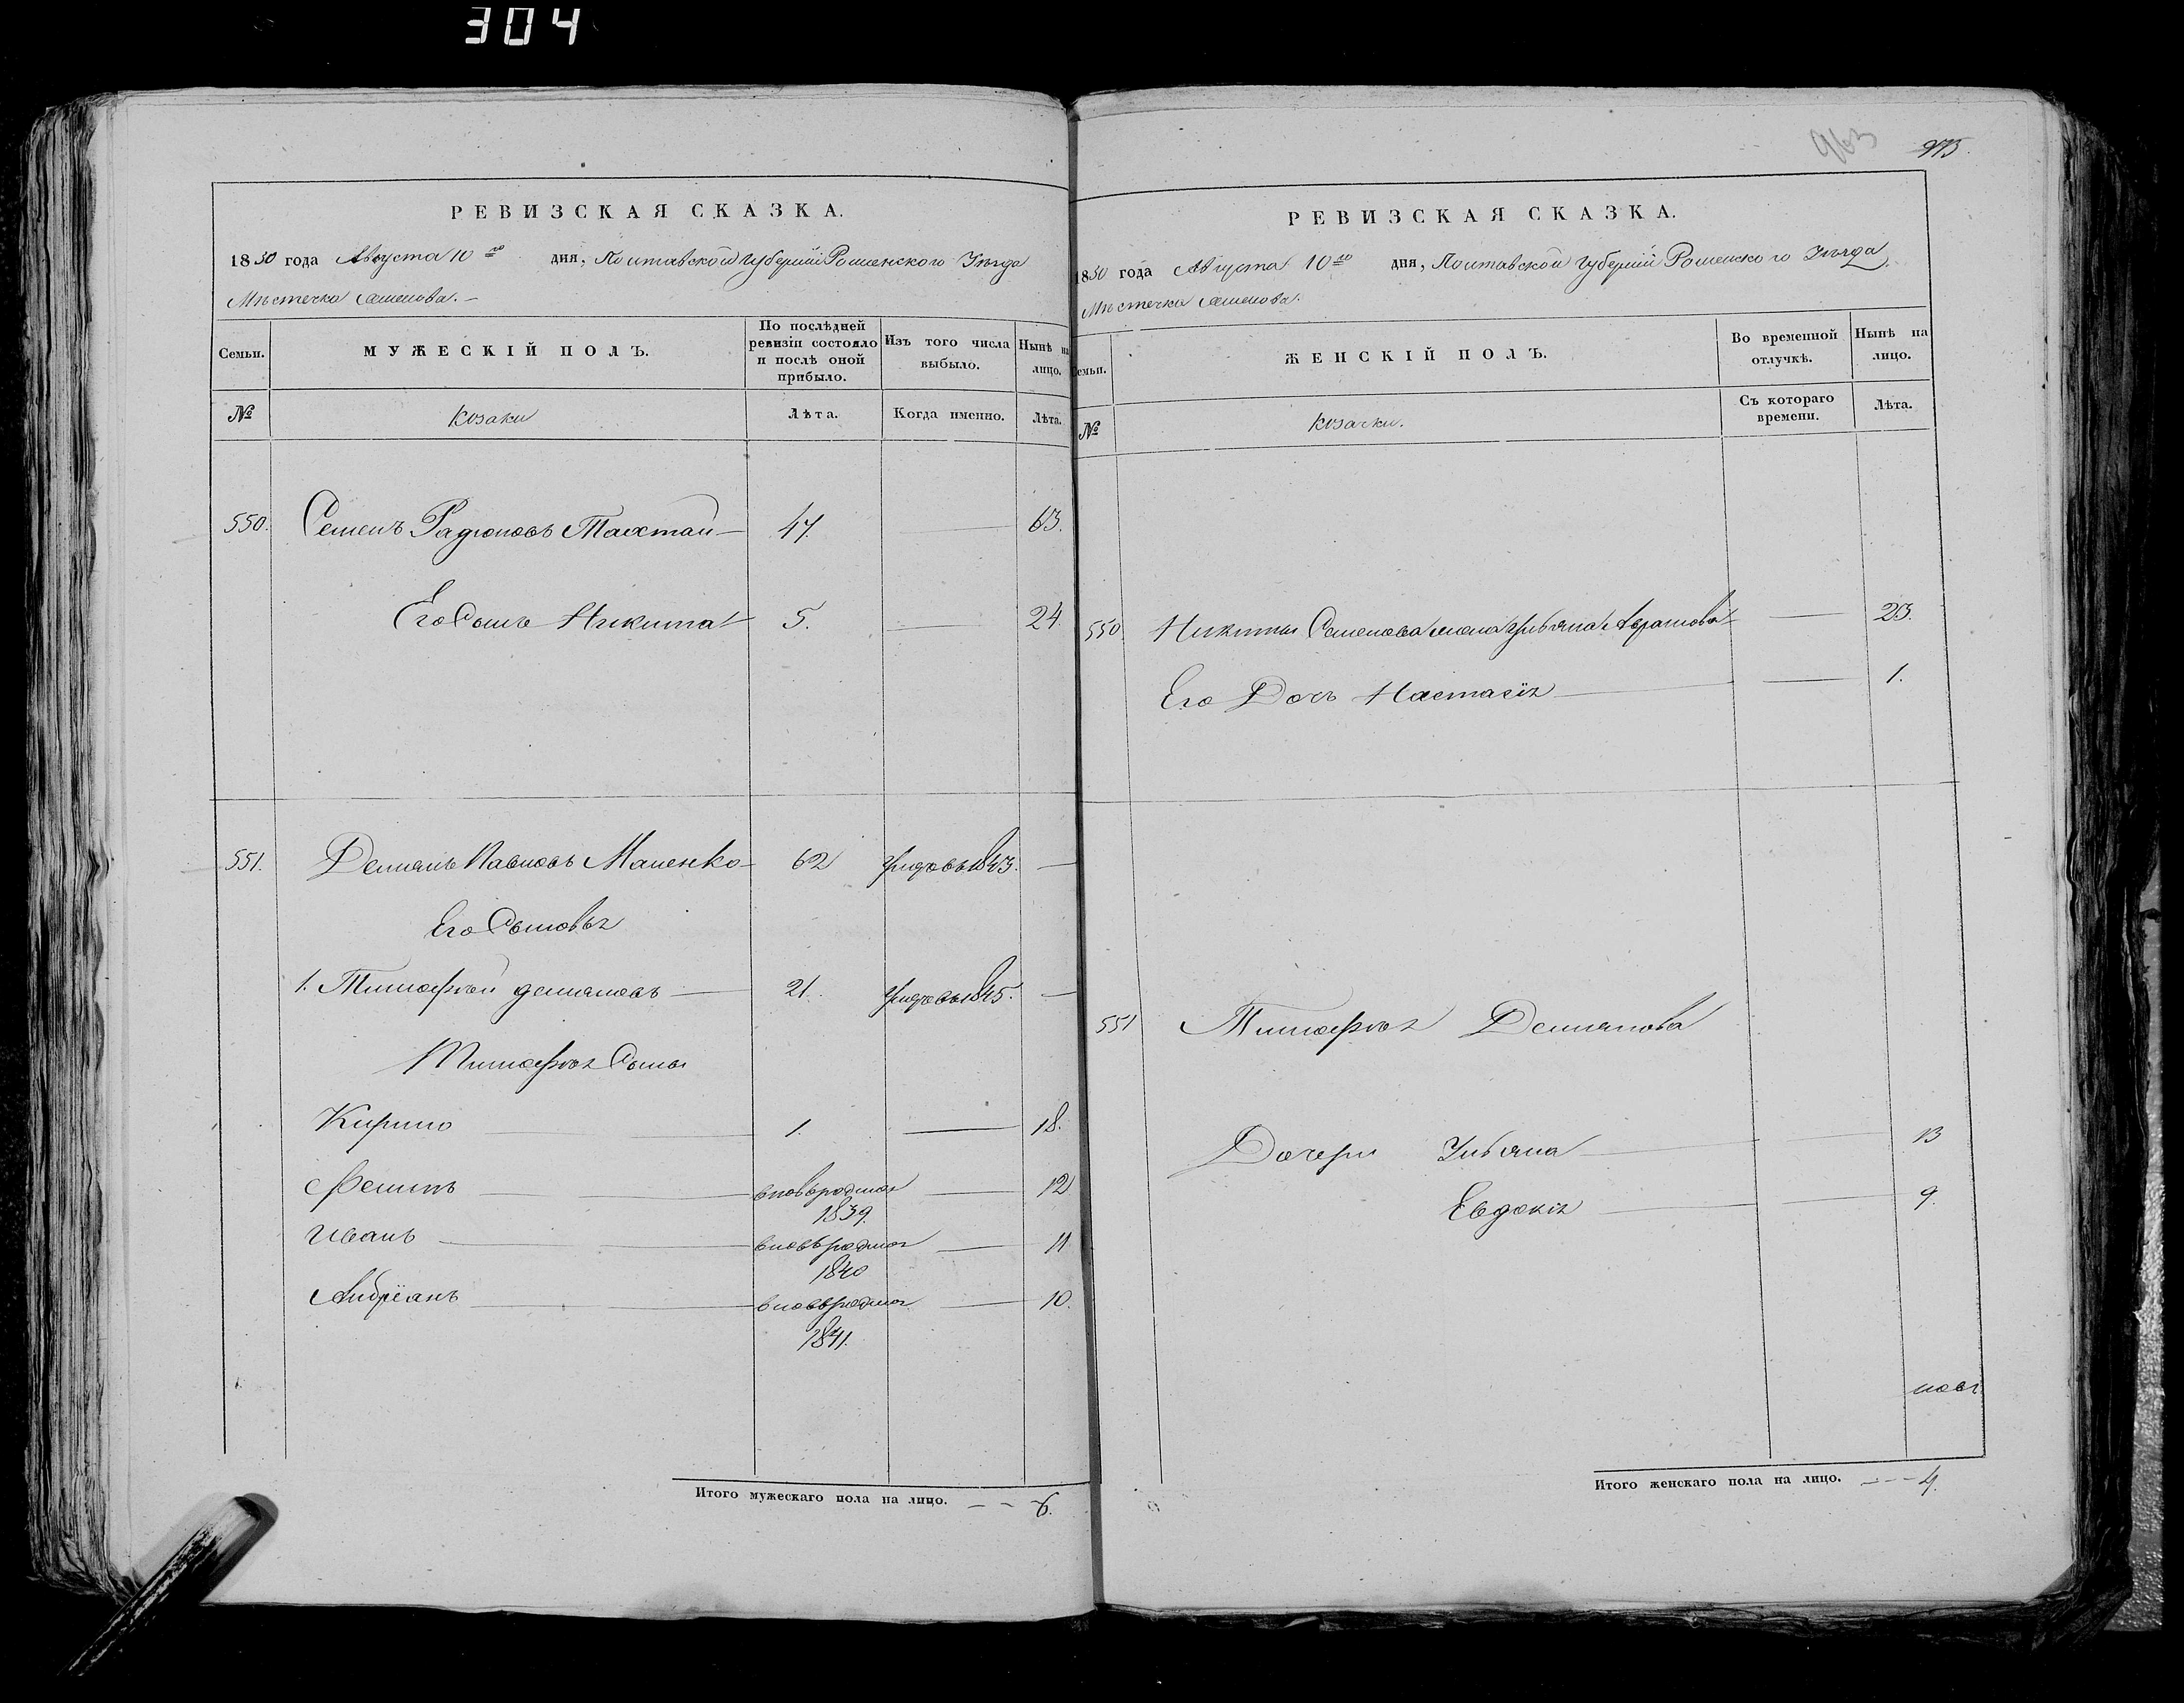 304
963
973.
РЕВИЗСКАЯ СКАЗКА.
1850 года Августа 10го дня, Полтавской Губерніи Роменского Уѣзда
Мѣстечка Смелова.
Семьи. МУЖЕСКІЙ ПОЛЪ. По послѣдней ревизіи состояло и послѣ оной прибыло. Изъ того числа выбыло. Нынѣ на лицо.
№ Козаки Лѣта. Когда именно. Лѣта.
550. Семенъ Радіоновъ Тахтай 47. 63.
Его Сынъ Никита 5. 24
551. Демянъ Павловъ Маценко 62 умеръ въ 1843.
Его Сыновья
1. Тимофѣй Демяновъ 21. умеръ въ 1845.
Тимофѣя Сыны
Кирило 1. 18.
Филипъ вновьрожден 12
1839.
Иванъ вновьрожден 11
1840
Андріанъ вновьрожден 10.
1841.
Итого мужескаго пола на лицо. 6.
РЕВИЗСКАЯ СКАЗКА.
1850 года Августа 10го дня, Полтавской Губерніи Роменского Уѣзда
Мѣстечка Смелова.
Семьи. ЖЕНСКІЙ ПОЛЪ. Во временной отлучкѣ. Нынѣ на лицо.
№ Козачки. Съ котораго времени. Лѣта.
550 Никиты Семенова жена Ульяна Аврамова 23.
Его Дочь Настасія 1.
551 Тимофѣя Демянова
Дочери Ульяна 13
Евдокія 9.
Итого женскаго пола на лицо. 4.